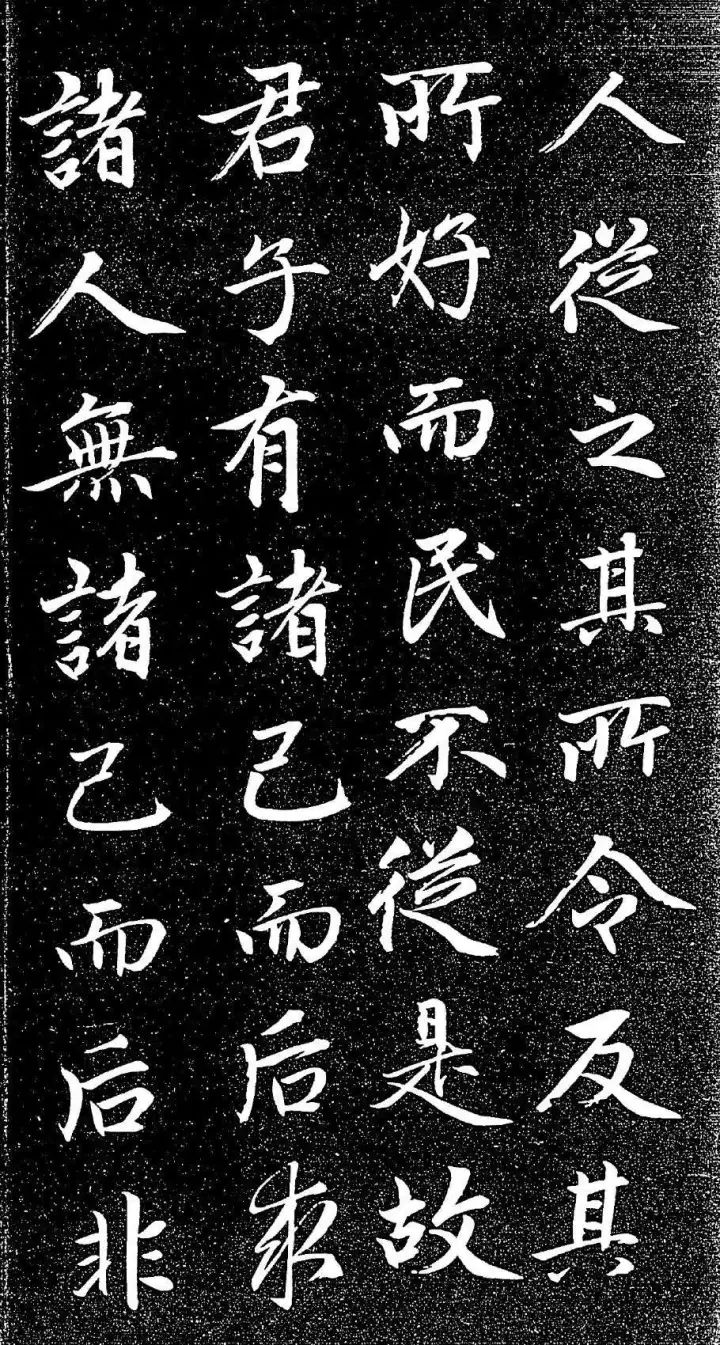 人從之其所令反其
所好而民不從是故
君子有諸己而后求
諸人無諸己而后非